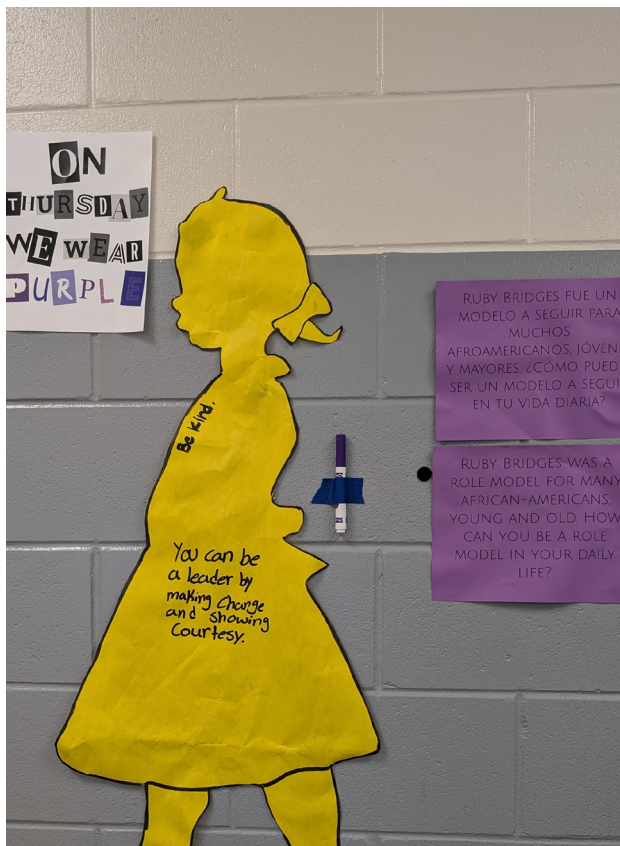 ON
THURSDAY
WE WEAR
PURPLE
Be Kind.
You can be
a leader by
making Change
and showing
Courtesy.
RUBY BRIDGES FUE UN
MODELO A SEGUIR PARA
MUCHOS
AFROAMERICANOS, JÓVEN
Y MAYORES. ¿CÓMO PUED
SER UN MODELO A SEGUI
EN TU VIDA DIARIA?
RUBY BRIDGES WAS A
ROLE MODEL FOR MANY
AFRICAN-AMERICANS,
YOUNG AND OLD. HOW
CAN YOU BE A ROLE
MODEL IN YOUR DAILY
LIFE?